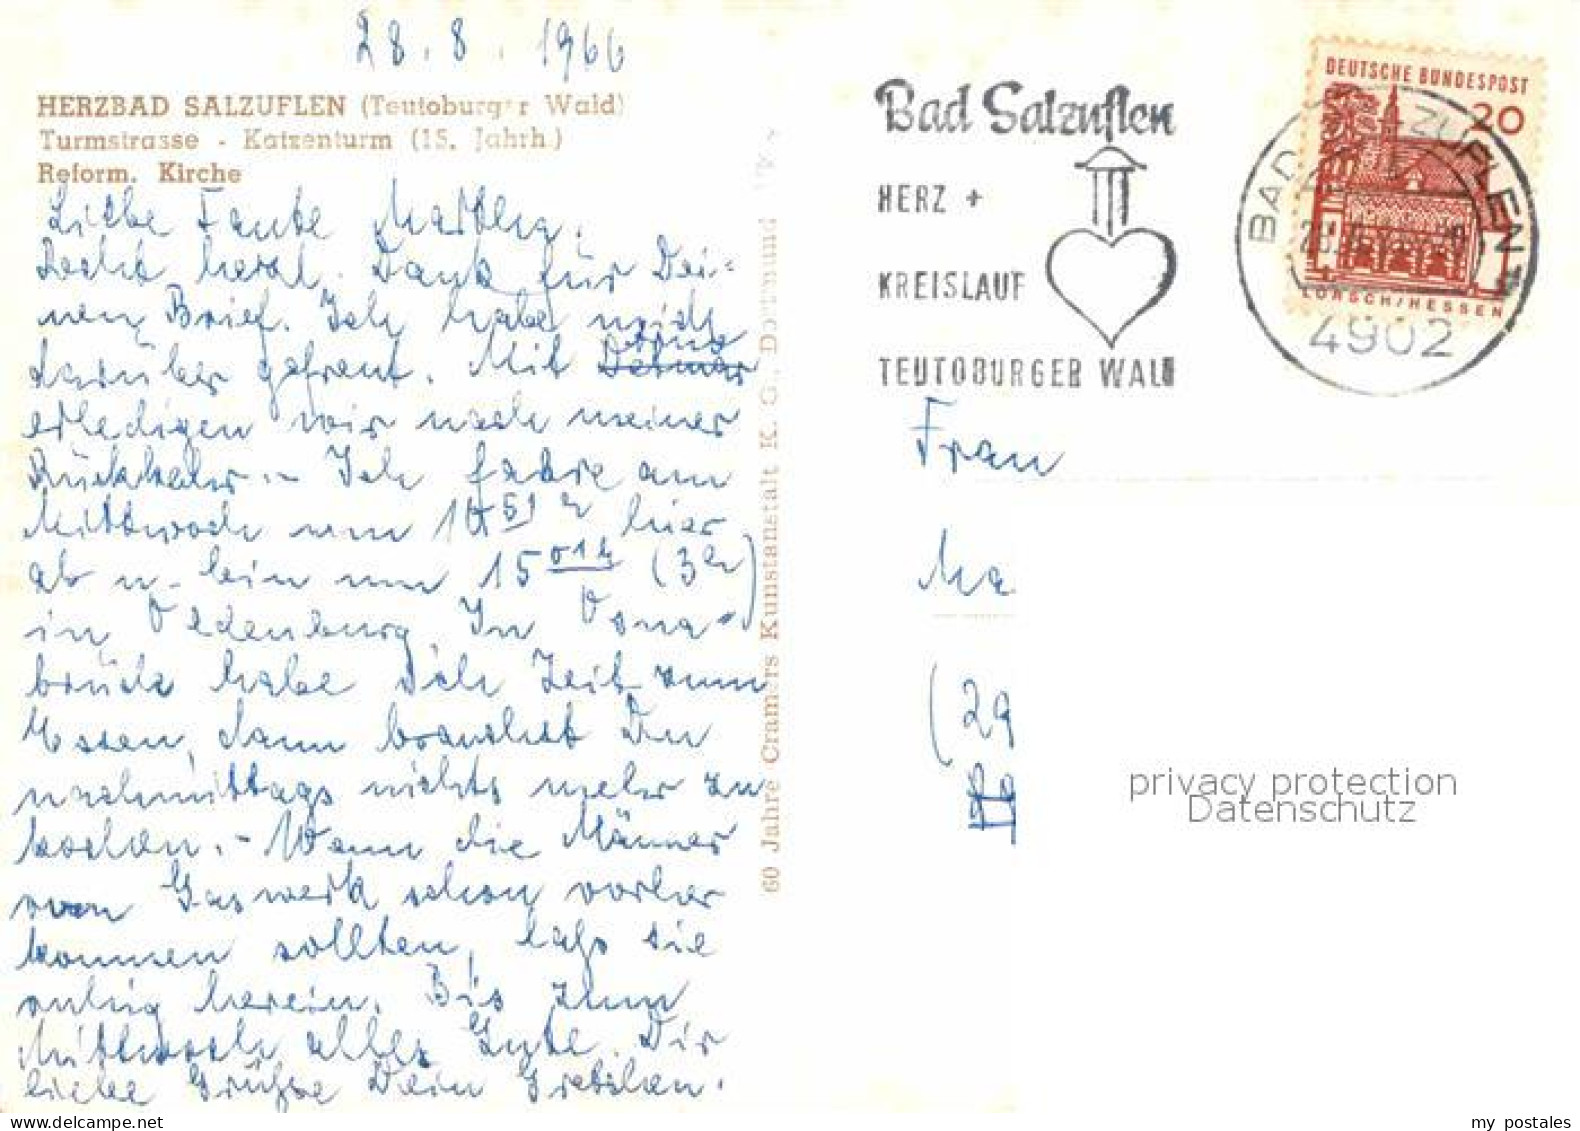 28.8.1966
HERZBAD SALZUFLEN (Teutoburger Wald)
Turmstrasse - Katzenturm (15. Jahrh.)
Reform. Kirche
Liebe Tante Martha,
Recht herzl. Dank für Dei=
nen Brief. Ich habe mich
darüber gefreut. Mit
erledigen wir nach meiner
Rückkehr. - Ich fahre am
Mittwoch um 51 hier
ab u. bin um 15 01 h (3 h)
in Oldenburg. In Osna=
brück habe ich Zeit zum
Essen, dann brauchst Du
nachmittags nichts mehr zu
kochen. - Wenn die Männer
vom Gaswerk schon vorher
kommen sollten, laß sie
ruhig herein. Bis zum
Mittwoch alles Gute. Dir
liebe Grüße Dein Gretchen.
60 Jahre Cramers Kunstanstalt K. G., Dortmund
Bad Salzuflen
HERZ +
KREISLAUF
TEUTOBURGER WALD
DEUTSCHE BUNDESPOST
20
LORSCH/HESSEN
BAD SALZUFLEN 1
4902
Frau
Ma
(29
privacy protection
Datenschutz
my postales